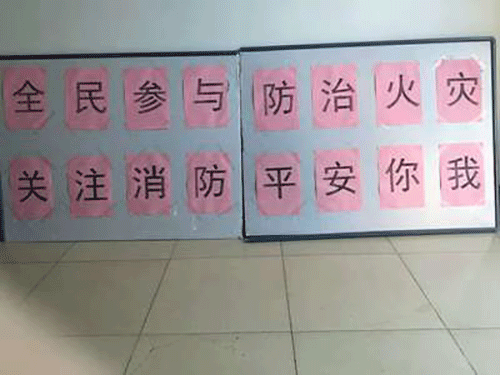 全民参与防治火灾
关注消防平安你我